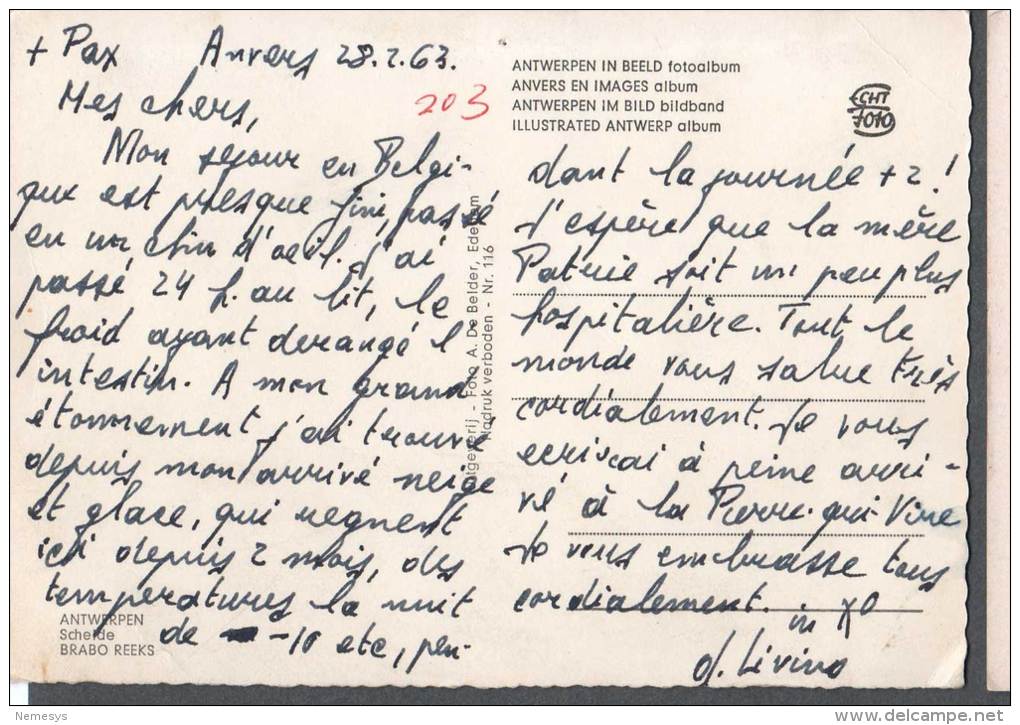 + Pax Anvers 28.2.63.
203
Mes chers,
Mon sejour en Belgi-
que est presque fini, passé
en un clin d'oeil. J'ai
passé 24 h. au lit, le
froid ayant derangé l'
intestin. A mon grand
étonnement j'ai trouvé,
depuis mon arrivé neige
et glace, qui regnent
ici depuis 2 mois, des
temperatures la nuit
de -10 etc, pen-
ANTWERPEN
Schelde
BRABO REEKS
Uitgeverij - Foto A. De Belder, Edegem
Nadruk verboden - Nr. 116
ANTWERPEN IN BEELD fotoalbum
ANVERS EN IMAGES album
ANTWERPEN IM BILD bildband
ILLUSTRATED ANTWERP album
ECHT
FOTO
dant la journée +2!
J'espère que la mère
Patrie soit un peu plus
hospitalière. Tout le
monde vous salue très
cordialement. Je vous
ecrivai à peine arri-
vé à la Pierre-qui-Vire
Je vous embrasse tous
cordialement. in XO
d. Livino
Nemesys
delcampe.net